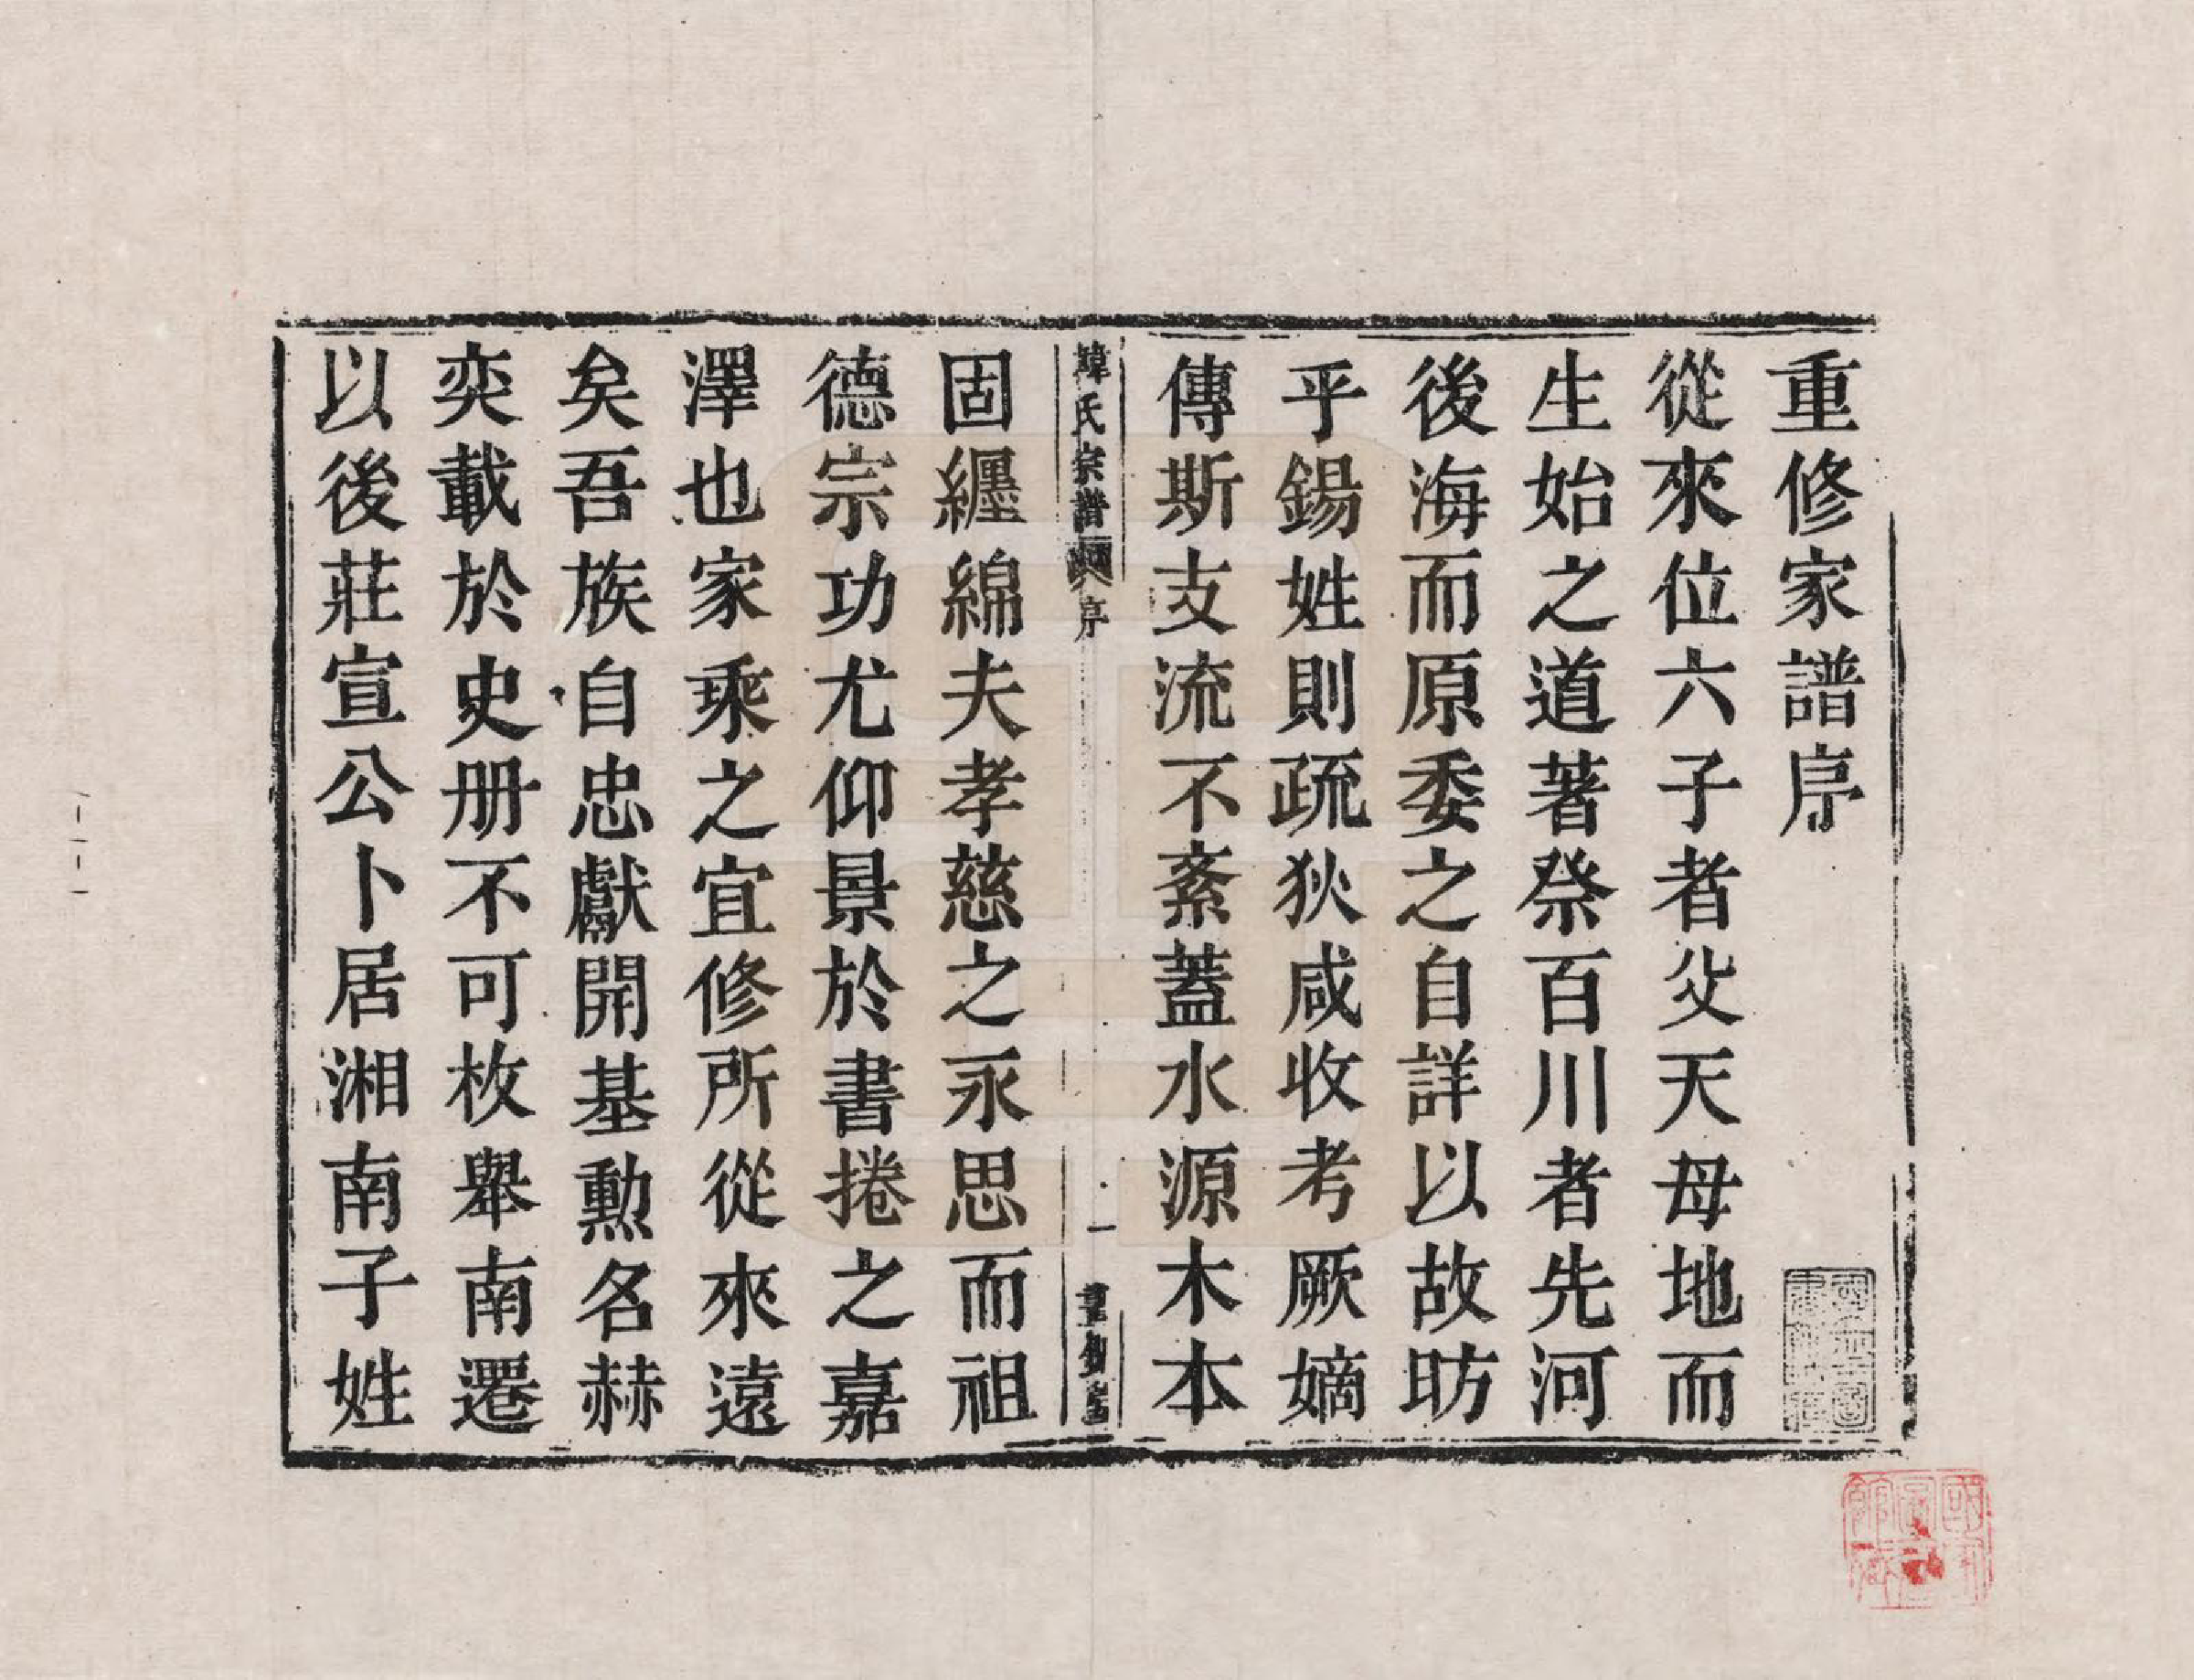 重修家譜序
從來位六子者父天母地而
生始之道著祭百川者先河
後海而原委之自詳以故昉
乎錫姓則疏狄咸收考厥嫡
傳斯支流不紊蓋水源木本
氏宗譜
序
一
固纏綿夫孝慈之永思而祖
德宗功尤仰景於書捲之嘉
澤也家乘之宜修所從來遠
矣吾族自忠獻開基勳名赫
奕載於史册不可枚舉南遷
以後莊宣公卜居湘南子姓